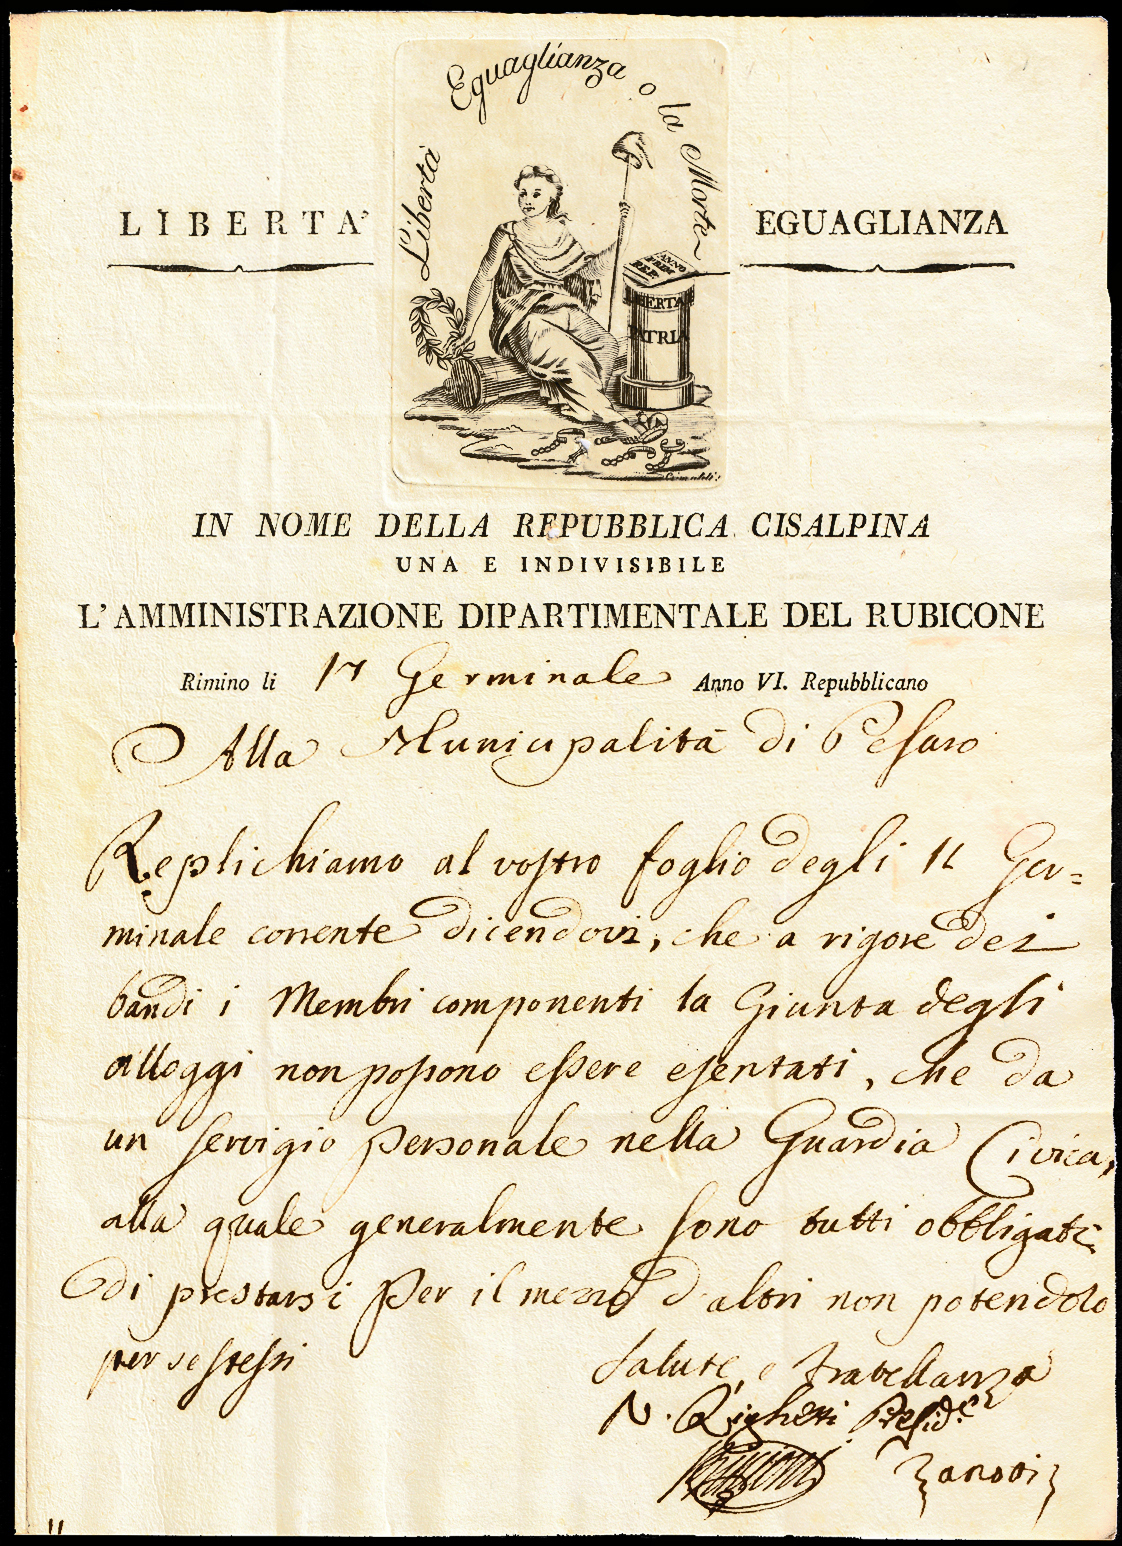 Libertà Eguaglianza o la Morte
LIBERTA'
EGUAGLIANZA
ANNO
PRIMO
REP.
LIBERTA
PATRIA
IN NOME DELLA REPUBBLICA CISALPINA
UNA E INDIVISIBILE
L'AMMINISTRAZIONE DIPARTIMENTALE DEL RUBICONE
Rimino li 17 Germinale Anno VI. Repubblicano
Alla Municipalità di Pesaro
Replichiamo al vostro foglio degli 11 Ger=
minale corrente dicendovi, che a rigore dei
bandi i Membri componenti la Giunta degli
alloggi non possono essere esentati, che da
un servigio personale nella Guardia Civica,
alla quale generalmente sono tutti obbligati
di prestarsi per il mezzo d'altri non potendolo
per se stessi
Salute, e Fratellanza
N. Righetti Presid.e
Zanotti